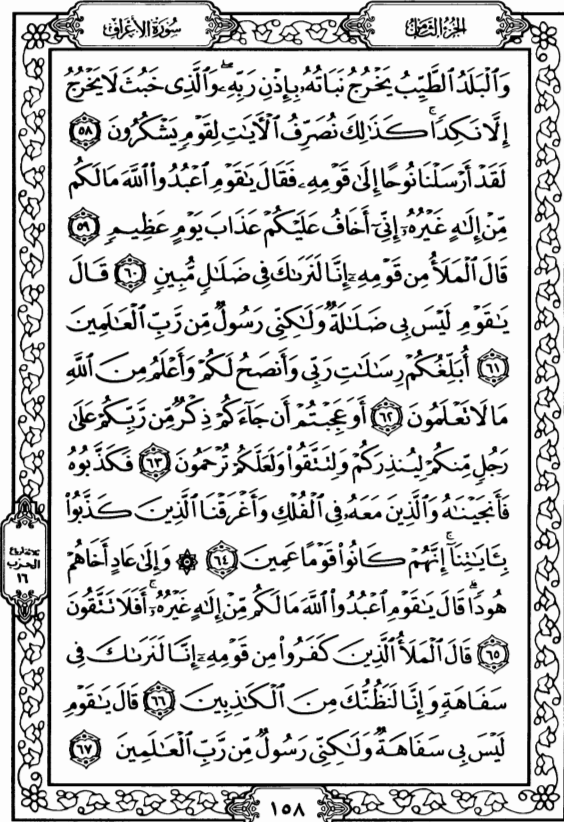 الجزء الثامن
سورة الأعراف
وَالْبَلَدُ الطَّيِّبُ يَخْرُجُ نَبَاتُهُ بِإِذْنِ رَبِّهِ ۖ وَالَّذِي خَبُثَ لَا يَخْرُجُ
إِلَّا نَكِدًا ۚ كَذَٰلِكَ نُصَرِّفُ الْآيَاتِ لِقَوْمٍ يَشْكُرُونَ ٥٨
لَقَدْ أَرْسَلْنَا نُوحًا إِلَىٰ قَوْمِهِ فَقَالَ يَٰقَوْمِ اعْبُدُوا اللَّهَ مَا لَكُم
مِّنْ إِلَٰهٍ غَيْرُهُ إِنِّي أَخَافُ عَلَيْكُمْ عَذَابَ يَوْمٍ عَظِيمٍ ٥٩
قَالَ الْمَلَأُ مِن قَوْمِهِ إِنَّا لَنَرَىٰكَ فِي ضَلَٰلٍ مُّبِينٍ ٦٠ قَالَ
يَٰقَوْمِ لَيْسَ بِي ضَلَٰلَةٌ وَلَٰكِنِّي رَسُولٌ مِّن رَّبِّ الْعَٰلَمِينَ
٦١ أُبَلِّغُكُمْ رِسَٰلَٰتِ رَبِّي وَأَنصَحُ لَكُمْ وَأَعْلَمُ مِنَ اللَّهِ
مَا لَا تَعْلَمُونَ ٦٢ أَوَعَجِبْتُمْ أَن جَاءَكُمْ ذِكْرٌ مِّن رَّبِّكُمْ عَلَىٰ
رَجُلٍ مِّنكُمْ لِيُنذِرَكُمْ وَلِتَتَّقُوا وَلَعَلَّكُمْ تُرْحَمُونَ ٦٣ فَكَذَّبُوهُ
فَأَنجَيْنَٰهُ وَالَّذِينَ مَعَهُ فِي الْفُلْكِ وَأَغْرَقْنَا الَّذِينَ كَذَّبُوا
بِـَٔايَٰتِنَا ۚ إِنَّهُمْ كَانُوا قَوْمًا عَمِينَ ٦٤ ۞ وَإِلَىٰ عَادٍ أَخَاهُمْ
هُودًا ۗ قَالَ يَٰقَوْمِ اعْبُدُوا اللَّهَ مَا لَكُم مِّنْ إِلَٰهٍ غَيْرُهُ ۚ أَفَلَا تَتَّقُونَ
٦٥ قَالَ الْمَلَأُ الَّذِينَ كَفَرُوا مِن قَوْمِهِ إِنَّا لَنَرَىٰكَ فِي
سَفَاهَةٍ وَإِنَّا لَنَظُنُّكَ مِنَ الْكَٰذِبِينَ ٦٦ قَالَ يَٰقَوْمِ
لَيْسَ بِي سَفَاهَةٌ وَلَٰكِنِّي رَسُولٌ مِّن رَّبِّ الْعَٰلَمِينَ ٦٧
ثلاثة أرباع
الحزب
١٦
١٥٨